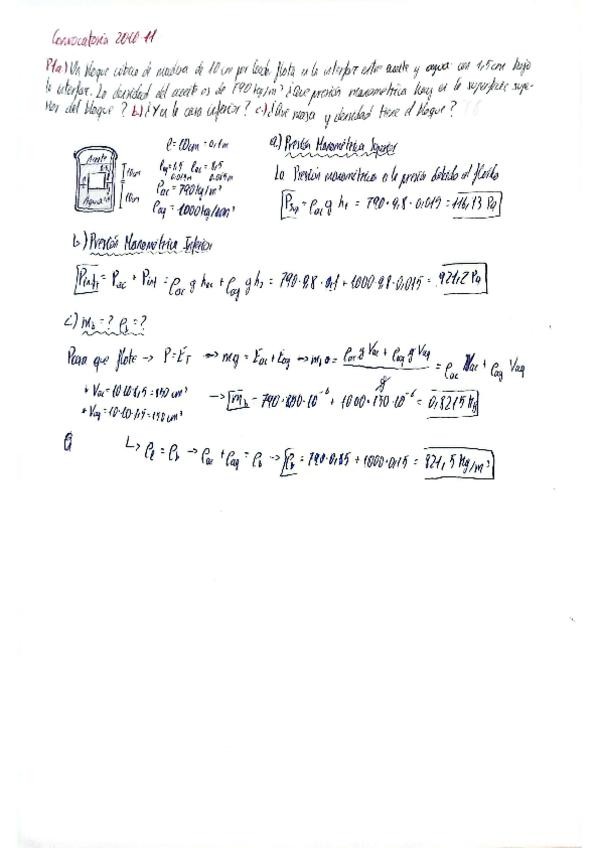 Convocatoria 2010-11
P1a) Un bloque cúbico de madera de 10 cm por lado flota en la interfaz entre aceite y agua con 1,5 cm bajo
la interfaz. La densidad del aceite es de 790 kg/m³ ¿Que presión manométrica hay en la superficie supe-
rior del bloque? b) ¿Y en la cara inferior? c) ¿Que masa y densidad tiene el bloque?
l = 10cm = 0,1m
a) Presión Manométrica Superior
Aceite
Agua
10cm
10cm
0.015m 0.085m
ρac = 790 kg/m³
ρag = 1000 kg/m³
La Presión manométrica es la presión debida al fluido
Psup = ρac g h1 = 790·9,8·0,015 = 116,13 Pa
b) Presión Manométrica Inferior
Pinf = Pac + Pint = ρac g hac + ρag g h2 = 790·9.8·0,1 + 1000·9.8·0,015 = 921,2 Pa
c) mb = ? ρb = ?
Para que flote → P = ET → mg = Eac + Eag → mb = ρac g Vac + ρag g Vag / g = ρac Vac + ρag Vag
* Vac = 10·10·8,5 = 850 cm³
* Vag = 10·10·1,5 = 150 cm³
→ mb = 790·850·10⁻⁶ + 1000·150·10⁻⁶ = 0,8215 kg
↳ ρf = ρb → ρac + ρag = ρb → ρb = 790·0,85 + 1000·0,15 = 821,5 kg/m³